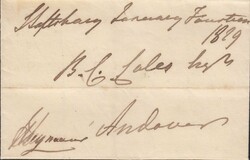 Shaftesbury January Fourteen
1829
B. C. Coles Esqr
Andover